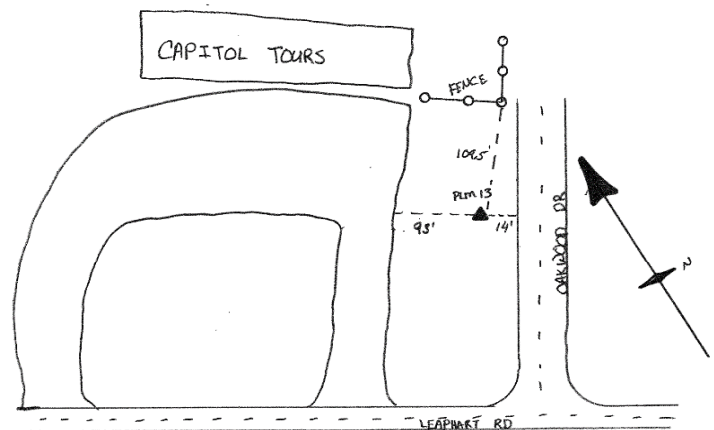 CAPITOL TOURS
FENCE
109.5'
PLM 13
93' 14'
OAKWOOD DR
N
LEAPHART RD